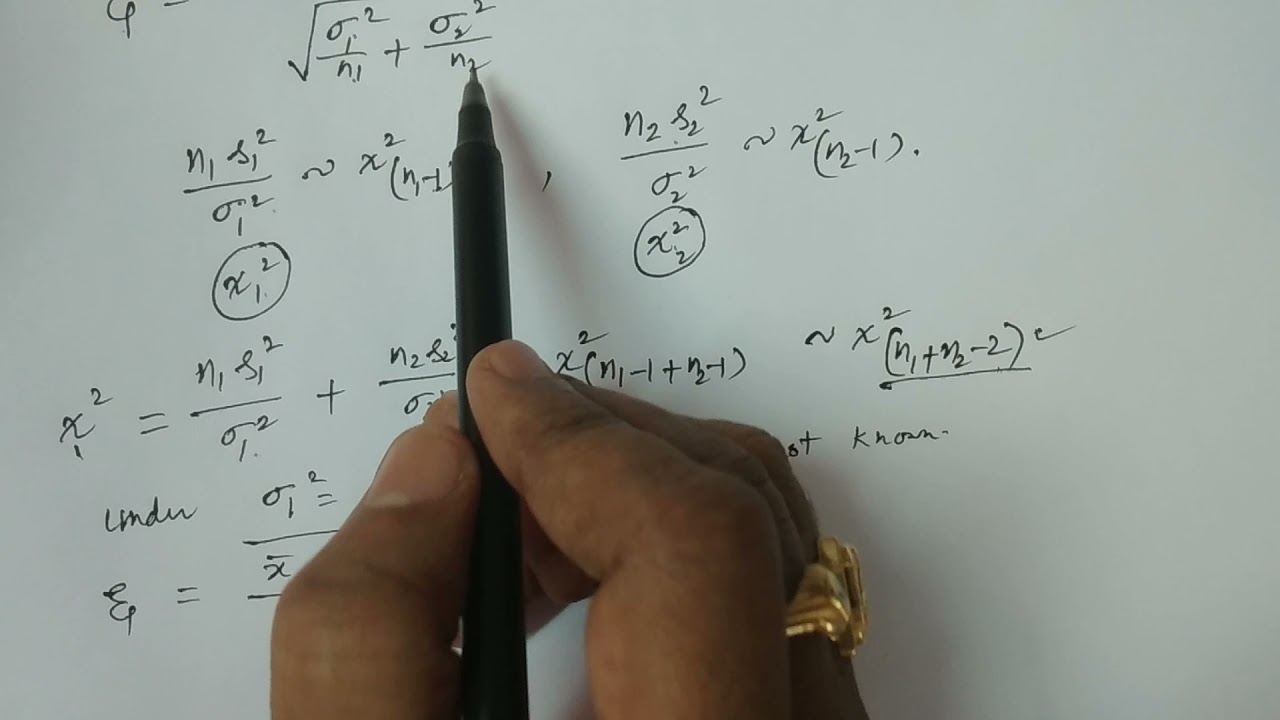 ξ =
√ σ₁²/n₁ + σ₂²/n₂
n₁ s₁²/σ₁² ~ χ²(n₁-1 , n₂ s₂²/σ₂² ~ χ²(n₂-1).
χ₁² χ₂²
χ₁² = n₁ s₁²/σ₁² + n₂ s₂ χ²(n₁-1+n₂-1) ~ χ²(n₁+n₂-2)
known.
under σ₁² =
ξ = x̄